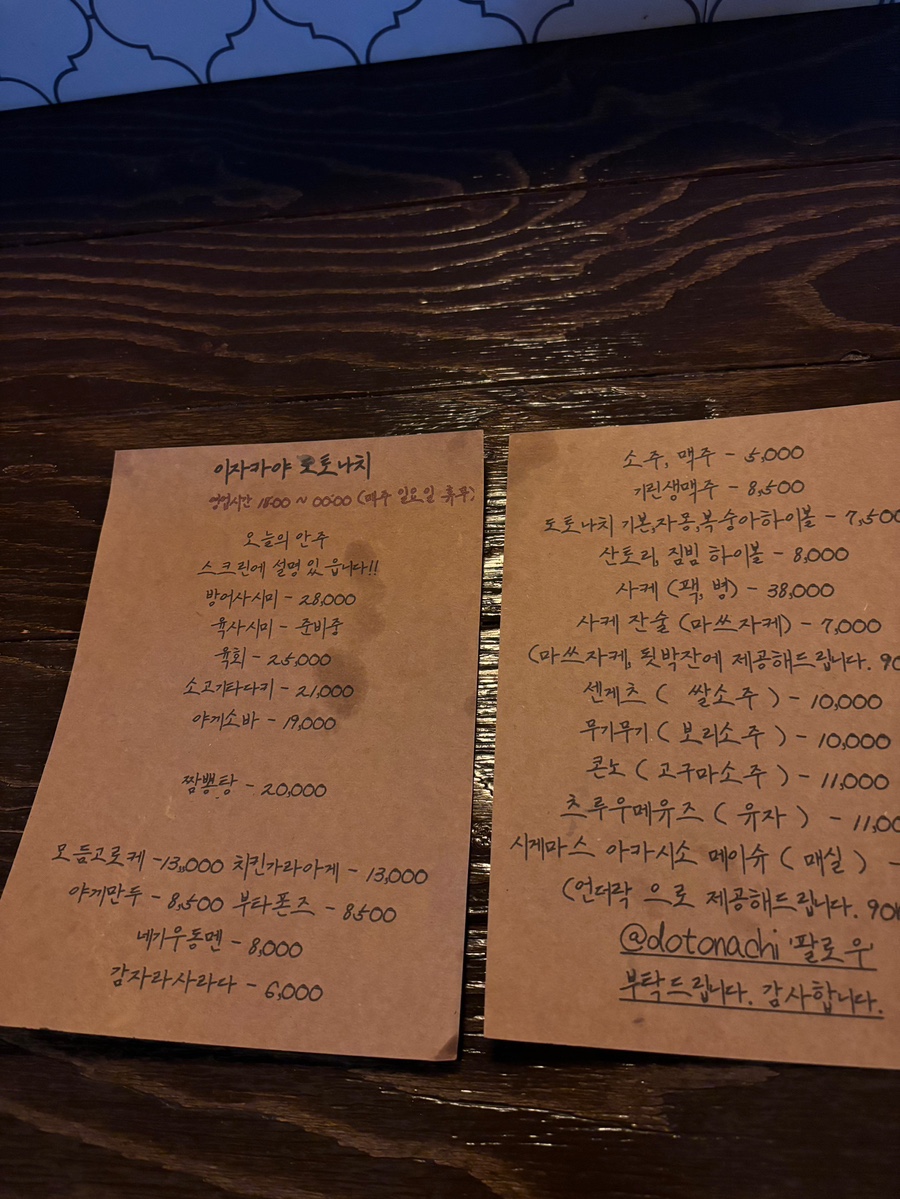 이자카야 도토나치
영업시간 18:00 ~ 00:00 (매주 일요일 휴무)
오늘의 안주
스크린에 설명 있읍니다!!
방어사시미 - 28,000
육사시미 - 준비중
육회 - 25,000
소고기타다키 - 21,000
야끼소바 - 19,000
짬뽕탕 - 20,000
모듬고로케 - 13,000 치킨가라아게 - 13,000
야끼만두 - 8,500 부타폰즈 - 8,500
네기우동멘 - 8,000
감자라사라다 - 6,000
소주, 맥주 - 5,000
기린생맥주 - 8,500
도토나치 기본,자몽,복숭아하이볼 - 7,500
산토리, 짐빔 하이볼 - 8,000
사케 (팩, 병) - 38,000
사케 잔술 (마쓰자케) - 7,000
(마쓰자케, 됫박잔에 제공해드립니다. 90
센게츠 ( 쌀소주 ) - 10,000
무기무기 ( 보리소주 ) - 10,000
콘노 ( 고구마소주 ) - 11,000
츠루우메유즈 ( 유자 ) - 11,00
시게마스 아카시소 메이슈 ( 매실 ) -
(언더락 으로 제공해드립니다. 90
@dotonachi '팔로우'
부탁드립니다. 감사합니다.